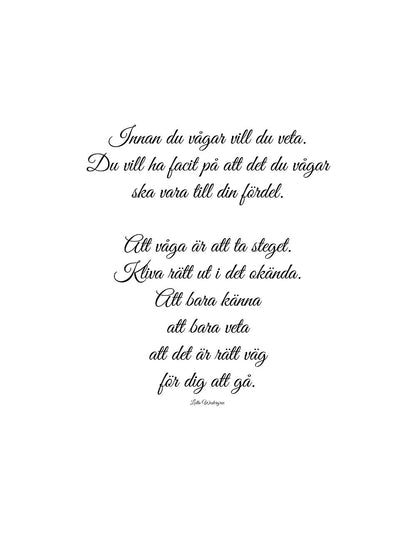 Innan du vågar vill du veta.
Du vill ha facit på att det du vågar
ska vara till din fördel.
Att våga är att ta steget.
Kliva rätt ut i det okända.
Att bara känna
att bara veta
att det är rätt väg
för dig att gå.